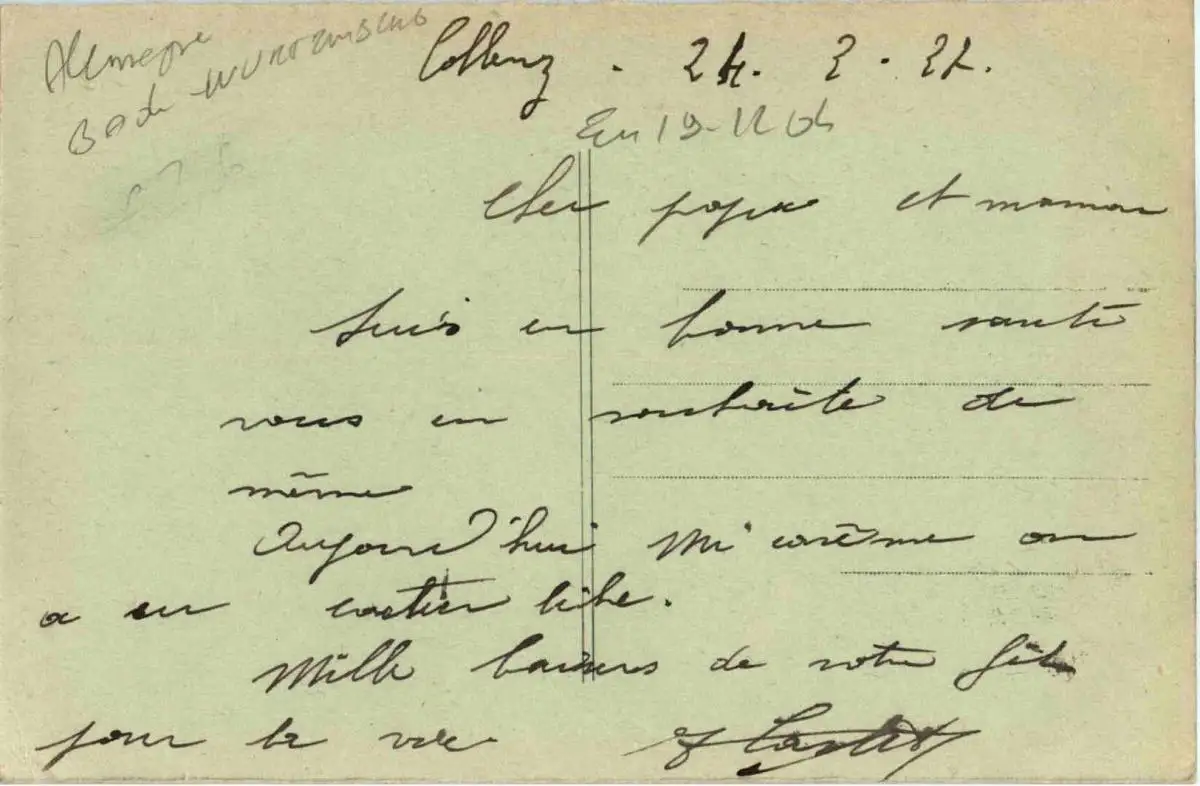 Allemagne
Bade wurtemberg
Coblenz . 24. 3 . 27.
En 19-12 04
Cher papa et maman
Suis en bonne santé
vous en souhaite de
même
Aujourd'hui Mi carême on
a eu cartier libre.
Mille baisers de votre fils
pour la vie